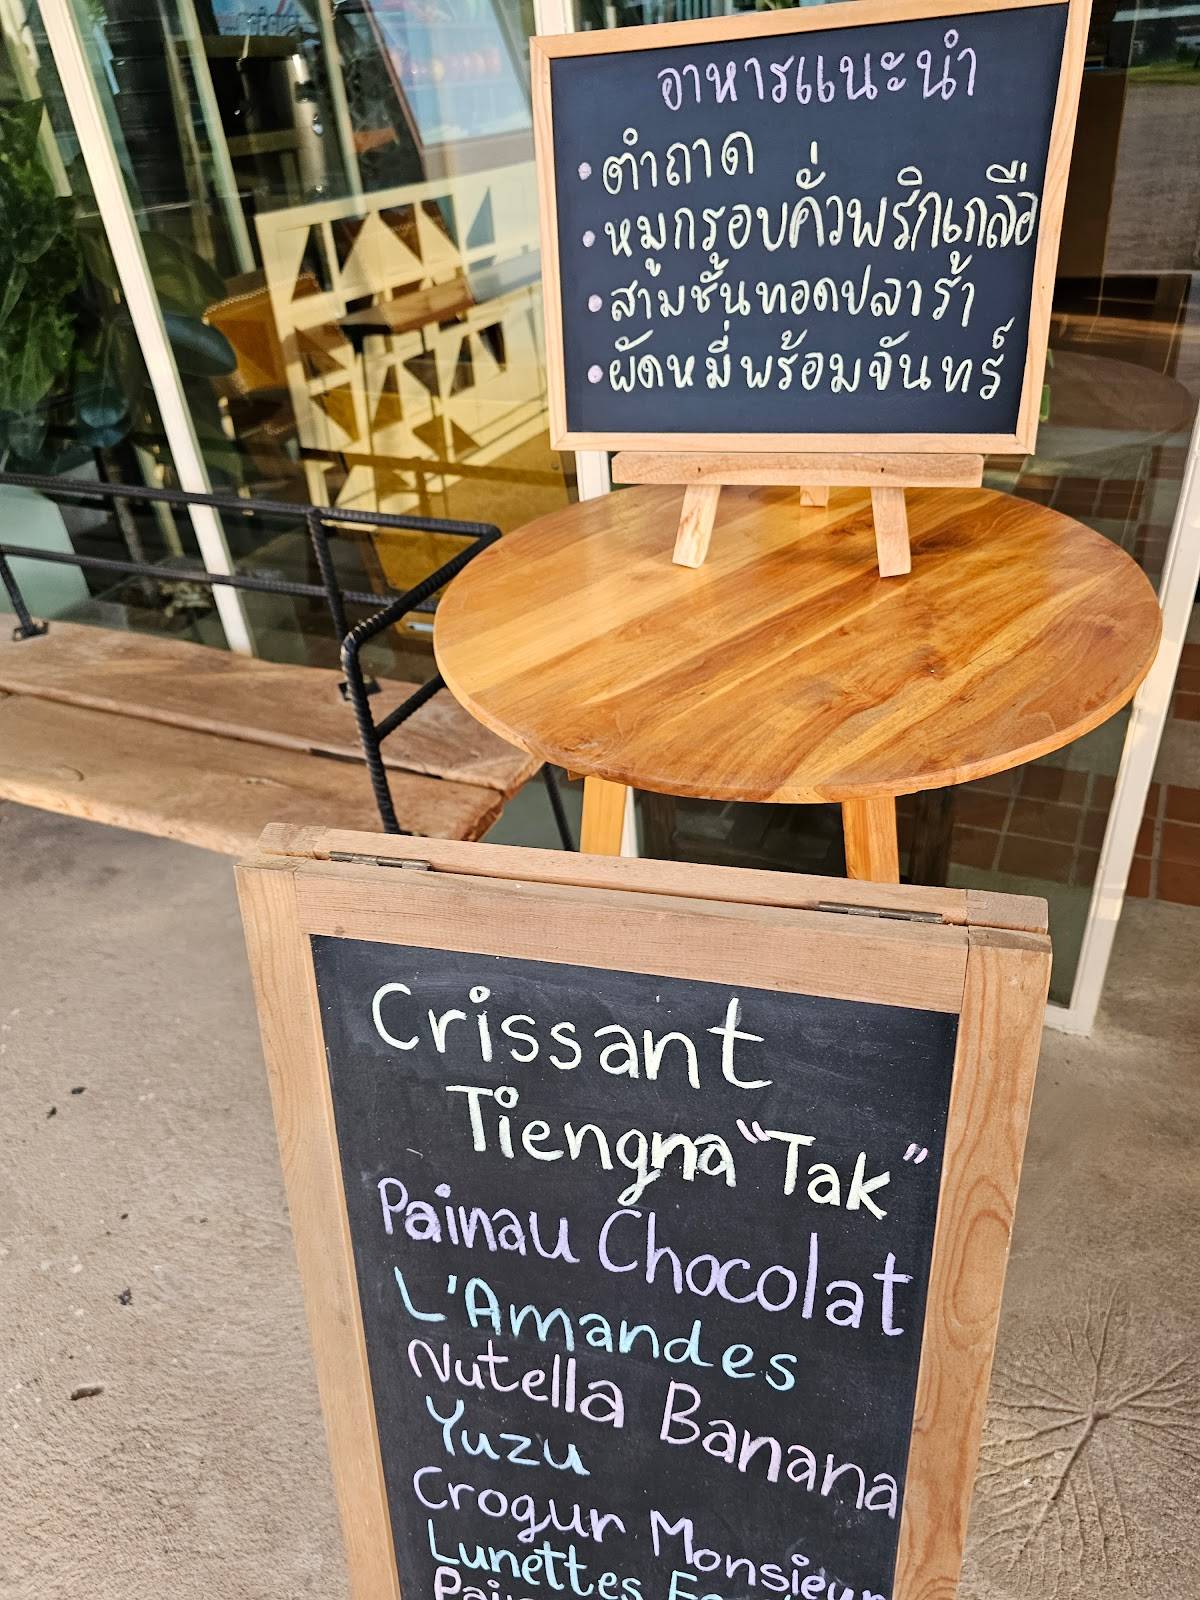 อาหารแนะนำ
• ตำถาด
• หมูกรอบคั่วพริกเกลือ
• สามชั้นทอดปลาร้า
• ผัดหมี่พร้อมจันทร์
Crissant
Tiengna "Tak"
Painau Chocolat
L'Amandes
Nutella Banana
Yuzu
Crogur Monsieur
Lunettes